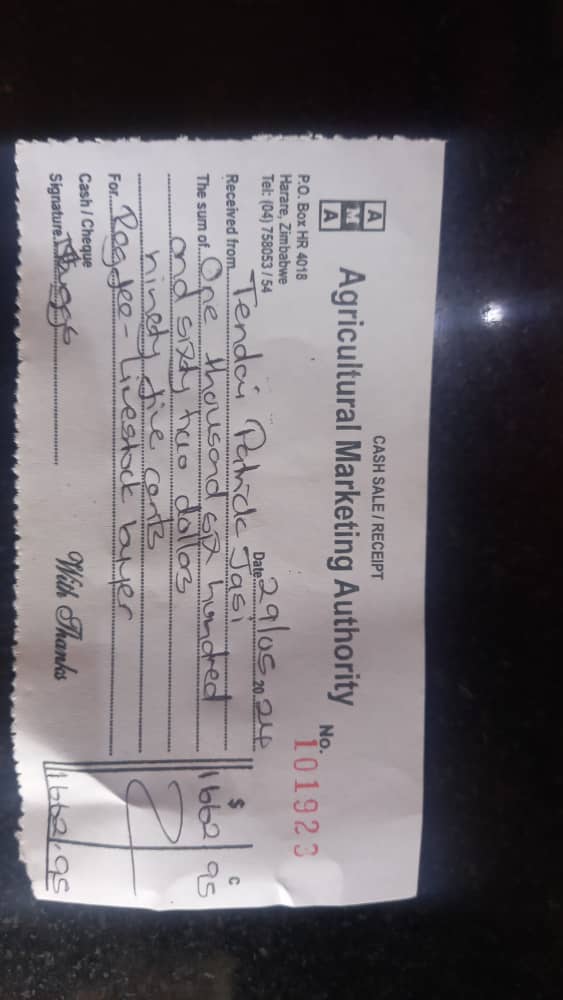 CASH SALE / RECEIPT
A
M
A
Agricultural Marketing Authority
No. 101923
P.O. Box HR 4018
Harare, Zimbabwe
Tel: (04) 758053 / 54
Date 29/05 20 24
$ C
Received from Tendai Patrick Jasi
The sum of One thousand six hundred 1662 95
and sixty two dollars
ninety five cents
For Reg fee - Livestock buyer
Cash / Cheque
With Thanks
1662.95
Signature